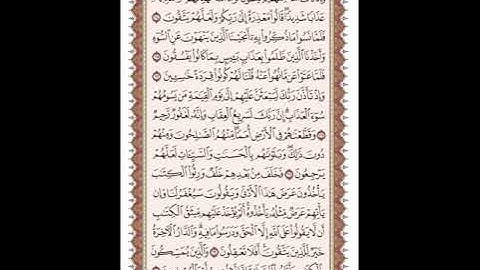 عَذَابًا شَدِيدًا قَالُوا مَعْذِرَةً إِلَىٰ رَبِّكُمْ وَلَعَلَّهُمْ يَتَّقُونَ
فَلَمَّا نَسُوا مَا ذُكِّرُوا بِهِ أَنجَيْنَا الَّذِينَ يَنْهَوْنَ عَنِ السُّوءِ
وَأَخَذْنَا الَّذِينَ ظَلَمُوا بِعَذَابٍ بَئِيسٍ بِمَا كَانُوا يَفْسُقُونَ
فَلَمَّا عَتَوْا عَن مَّا نُهُوا عَنْهُ قُلْنَا لَهُمْ كُونُوا قِرَدَةً خَاسِئِينَ
وَإِذْ تَأَذَّنَ رَبُّكَ لَيَبْعَثَنَّ عَلَيْهِمْ إِلَىٰ يَوْمِ الْقِيَٰمَةِ مَن يَسُومُهُمْ
سُوءَ الْعَذَابِ إِنَّ رَبَّكَ لَسَرِيعُ الْعِقَابِ وَإِنَّهُ لَغَفُورٌ رَّحِيمٌ
وَقَطَّعْنَٰهُمْ فِي الْأَرْضِ أُمَمًا مِّنْهُمُ الصَّٰلِحُونَ وَمِنْهُمْ
دُونَ ذَٰلِكَ وَبَلَوْنَٰهُم بِالْحَسَنَٰتِ وَالسَّيِّئَاتِ لَعَلَّهُمْ
يَرْجِعُونَ فَخَلَفَ مِن بَعْدِهِمْ خَلْفٌ وَرِثُوا الْكِتَٰبَ
يَأْخُذُونَ عَرَضَ هَٰذَا الْأَدْنَىٰ وَيَقُولُونَ سَيُغْفَرُ لَنَا وَإِن
يَأْتِهِمْ عَرَضٌ مِّثْلُهُ يَأْخُذُوهُ أَلَمْ يُؤْخَذْ عَلَيْهِم مِّيثَٰقُ الْكِتَٰبِ
أَن لَّا يَقُولُوا عَلَى اللَّهِ إِلَّا الْحَقَّ وَدَرَسُوا مَا فِيهِ وَالدَّارُ الْآخِرَةُ
خَيْرٌ لِّلَّذِينَ يَتَّقُونَ أَفَلَا تَعْقِلُونَ وَالَّذِينَ يُمَسِّكُونَ